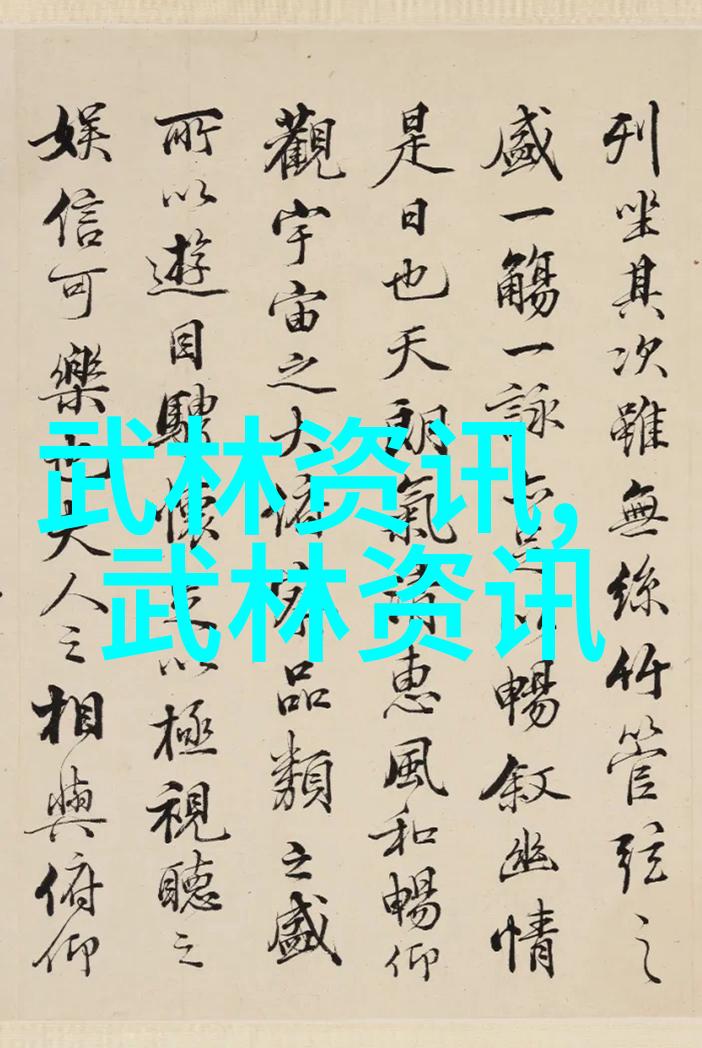 列坐其次雖無絲竹管弦之
盛一觴一詠亦足以暢敘幽情
是日也天朗氣清惠風和暢仰
觀宇宙之大俯察品類之盛
所以遊目騁懷足以極視聽之
娱信可樂也夫人之相與俯仰
武林资讯,
武林资讯